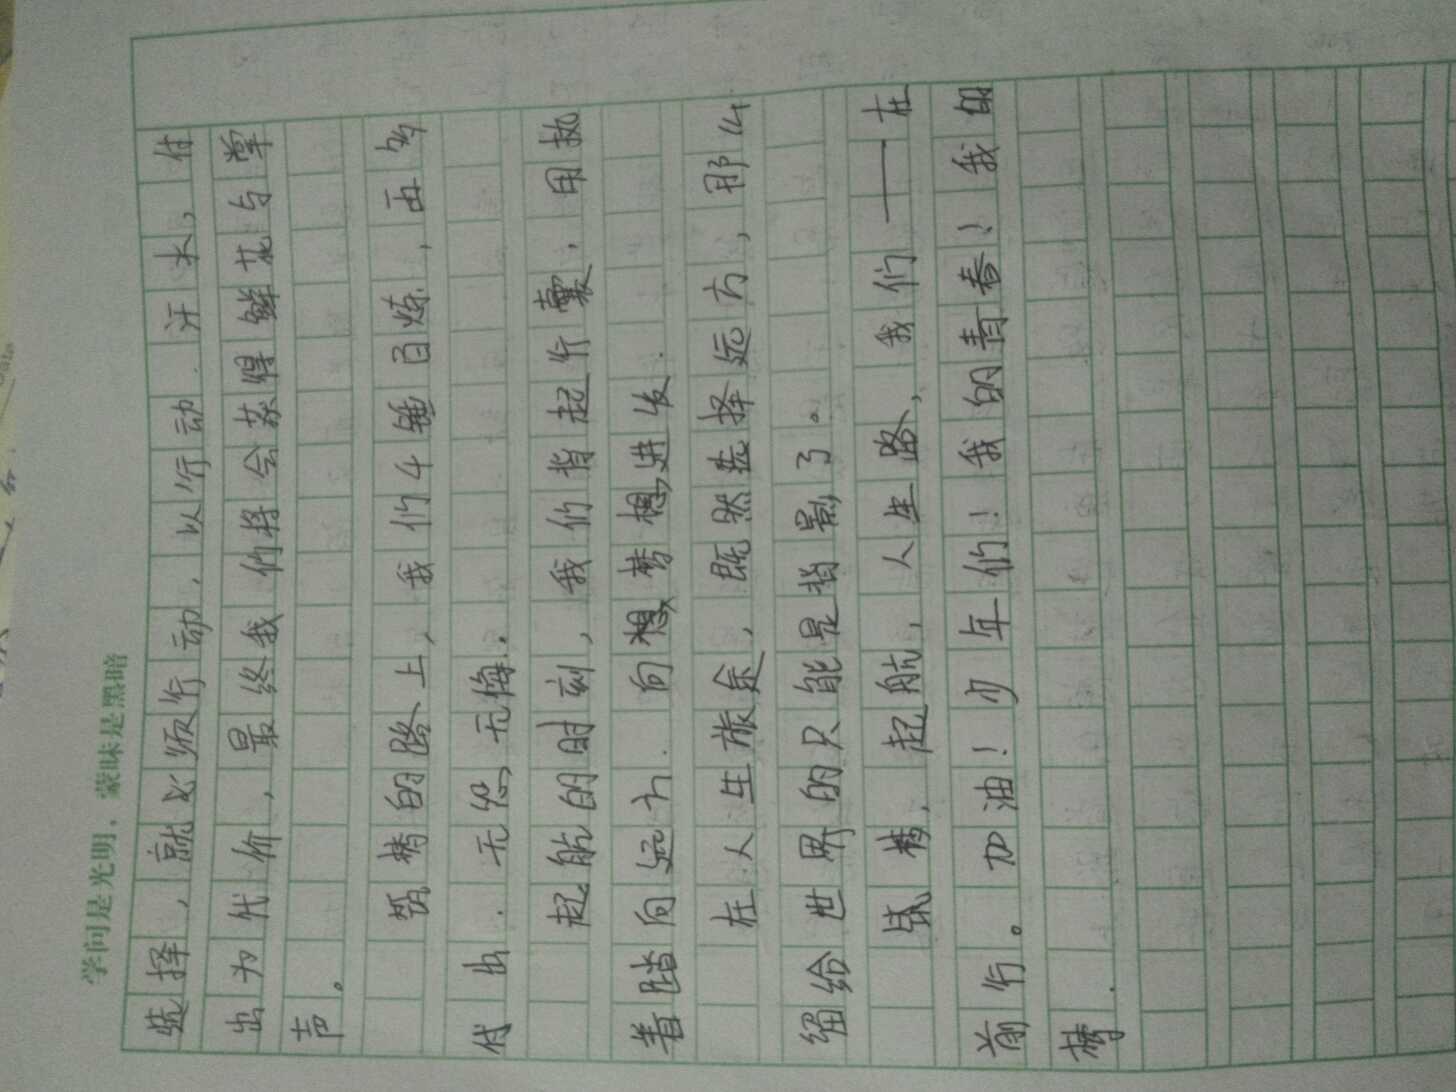 学问是光明，蒙昧是黑暗
选择，就必须行动，以行动.汗水，付
出为代价，最终我们将会获得鲜花与掌
声。
筑梦的路上，我们千锤百炼，再多
付出.无怨无悔..
起航的时刻，我们背起行囊，用执
着踏向远方.向想梦想进发.
在人生旅途，既然选择远方，那么
留给世界的只能是背影了。
筑梦，起航，人生路，我们——在
前行。加油！少年们！我的青春！我的
梦.